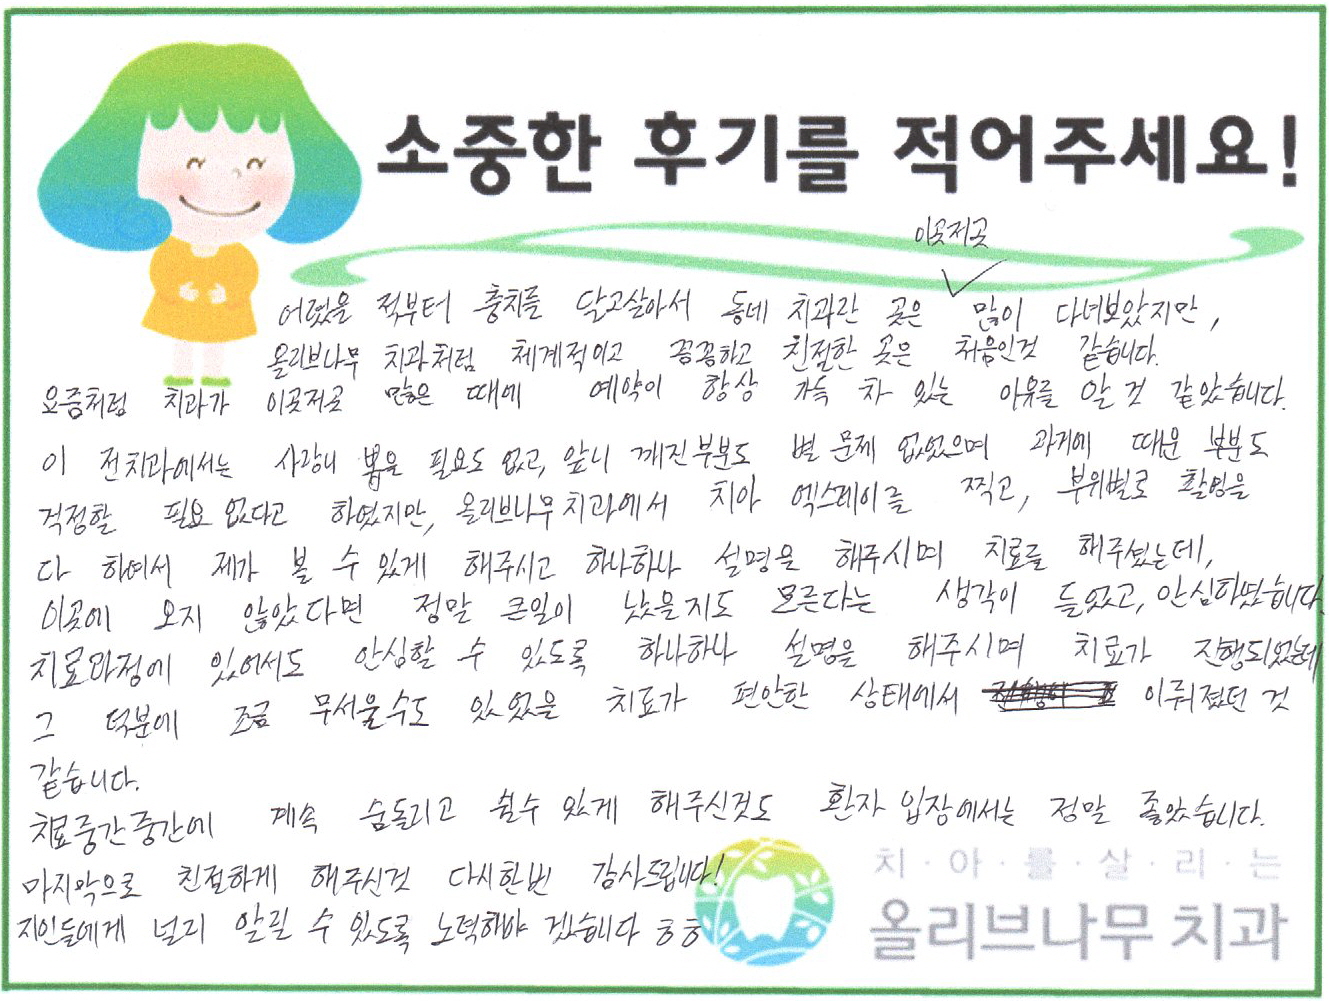 소중한 후기를 적어주세요!
이곳저곳
어렸을 적부터 충치를 달고살아서 동네 치과란 곳은 많이 다녀보았지만,
올리브나무 치과처럼 체계적이고 꼼꼼하고 친절한 곳은 처음인것 같습니다.
요즘처럼 치과가 이곳저곳 많은 때에 예약이 항상 가득 차 있는 이유를 알 것 같았습니다.
이 전치과에서는 사랑니 뽑을 필요도 없고, 앞니 깨진부분도 별 문제 없었으며 과거에 때운 부분도
걱정할 필요 없다고 하였지만, 올리브나무치과에서 치아 엑스레이를 찍고, 부위별로 촬영을
다 하여서 제가 볼 수 있게 해주시고 하나하나 설명을 해주시며 치료를 해주셨는데,
이곳에 오지 않았다면 정말 큰일이 났을지도 모른다는 생각이 들었고, 안심하였습니다.
치료과정에 있어서도 안심할 수 있도록 하나하나 설명을 해주시며 치료가 진행되었는데
그 덕분에 조금 무서울수도 있었을 치료가 편안한 상태에서 이뤄졌던 것
같습니다.
치료중간중간에 계속 숨돌리고 쉴수 있게 해주신것도 환자 입장에서는 정말 좋았습니다.
마지막으로 친절하게 해주신것 다시한번 감사드립니다!
지인들에게 널리 알릴 수 있도록 노력해야 겠습니다 ㅎㅎ
치·아·를·살·리·는
올리브나무 치과